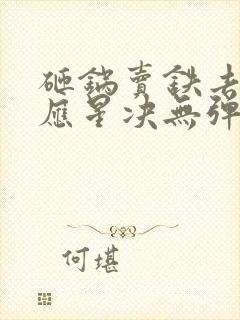 砸鍋賣鉄去
應星決無彈
何堪